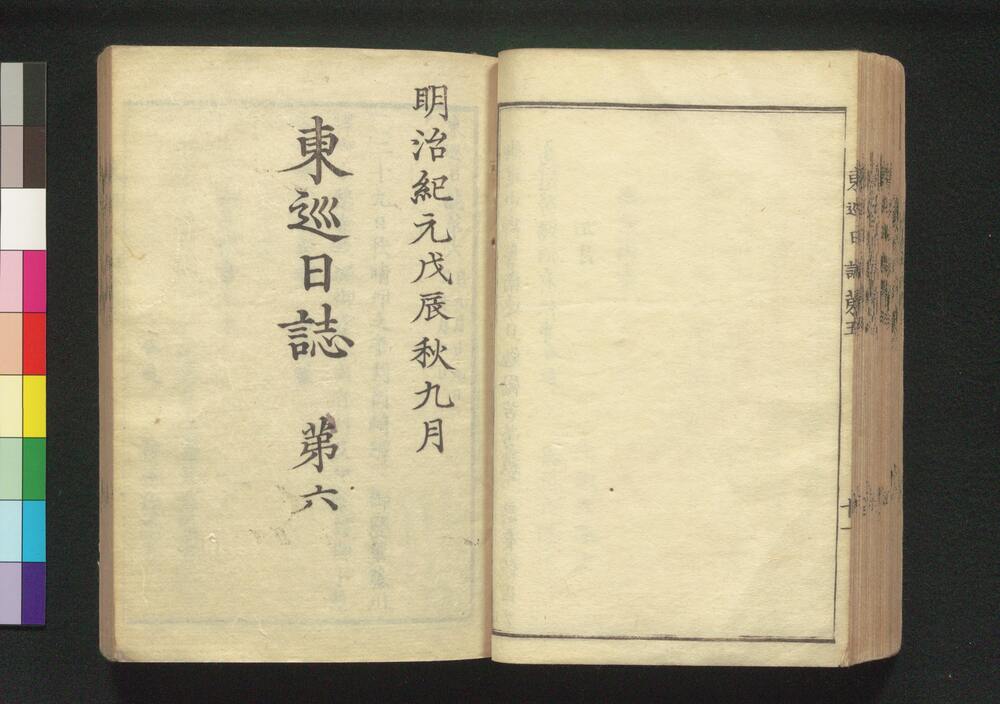 東巡日誌 第五
十一
明治紀元戊辰秋九月
東巡日誌 第六